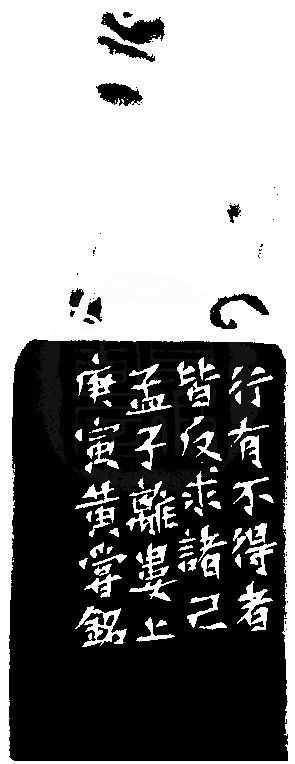 行有不得者
皆反求諸己
孟子離婁上
庚寅黃嘗銘